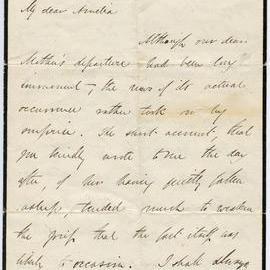 My dear Amelia
Although our dear
Mother's departure had been long
imminent, the news of its actual
occurrence rather took me by
surprise. The short account, that
you kindly wrote to me the day
after, of her having gently fallen
asleep, tended much to weaken
the grief that the fact itself was
likely to occasion. I shall always